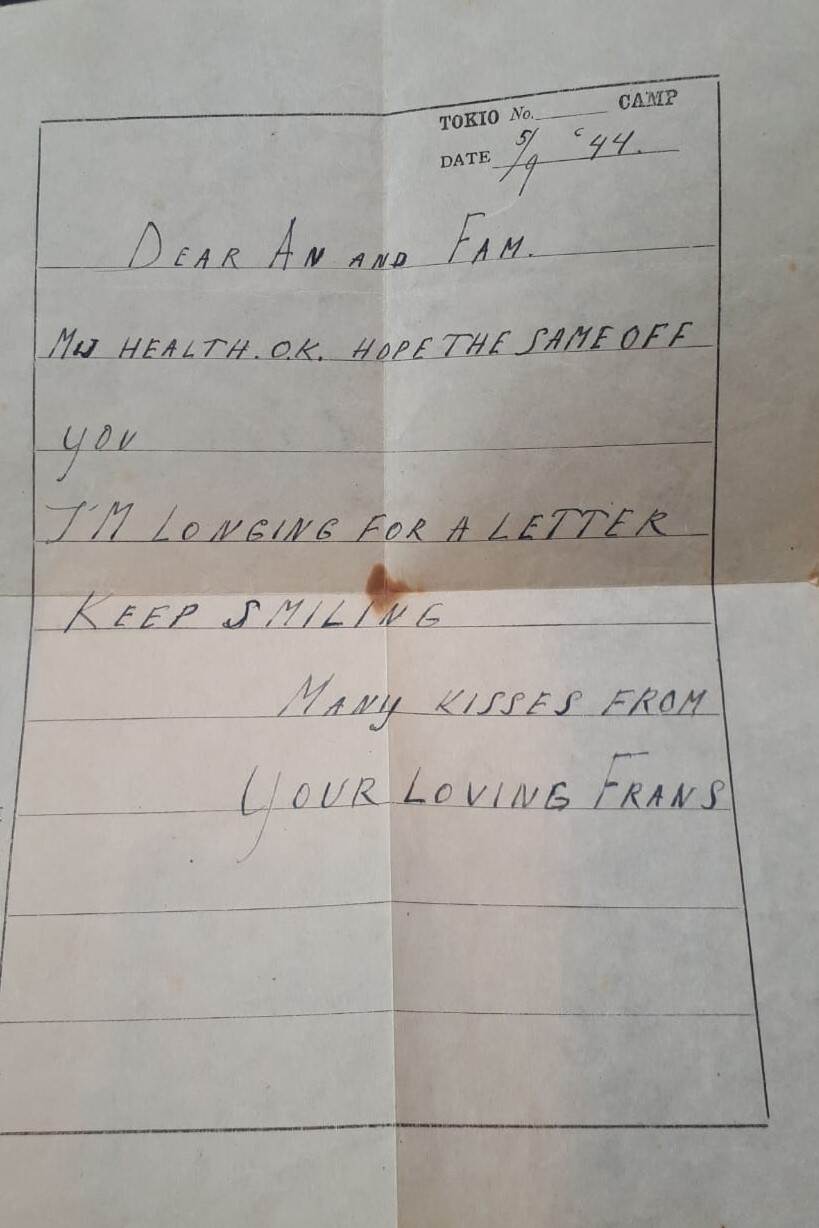 TOKIO No. CAMP
DATE 5/9 '44.
DEAR AN AND FAM.
MIJ HEALTH. O.K. HOPE THE SAME OFF
YOU
I'M LONGING FOR A LETTER
KEEP SMILING
MANY KISSES FROM
YOUR LOVING FRANS